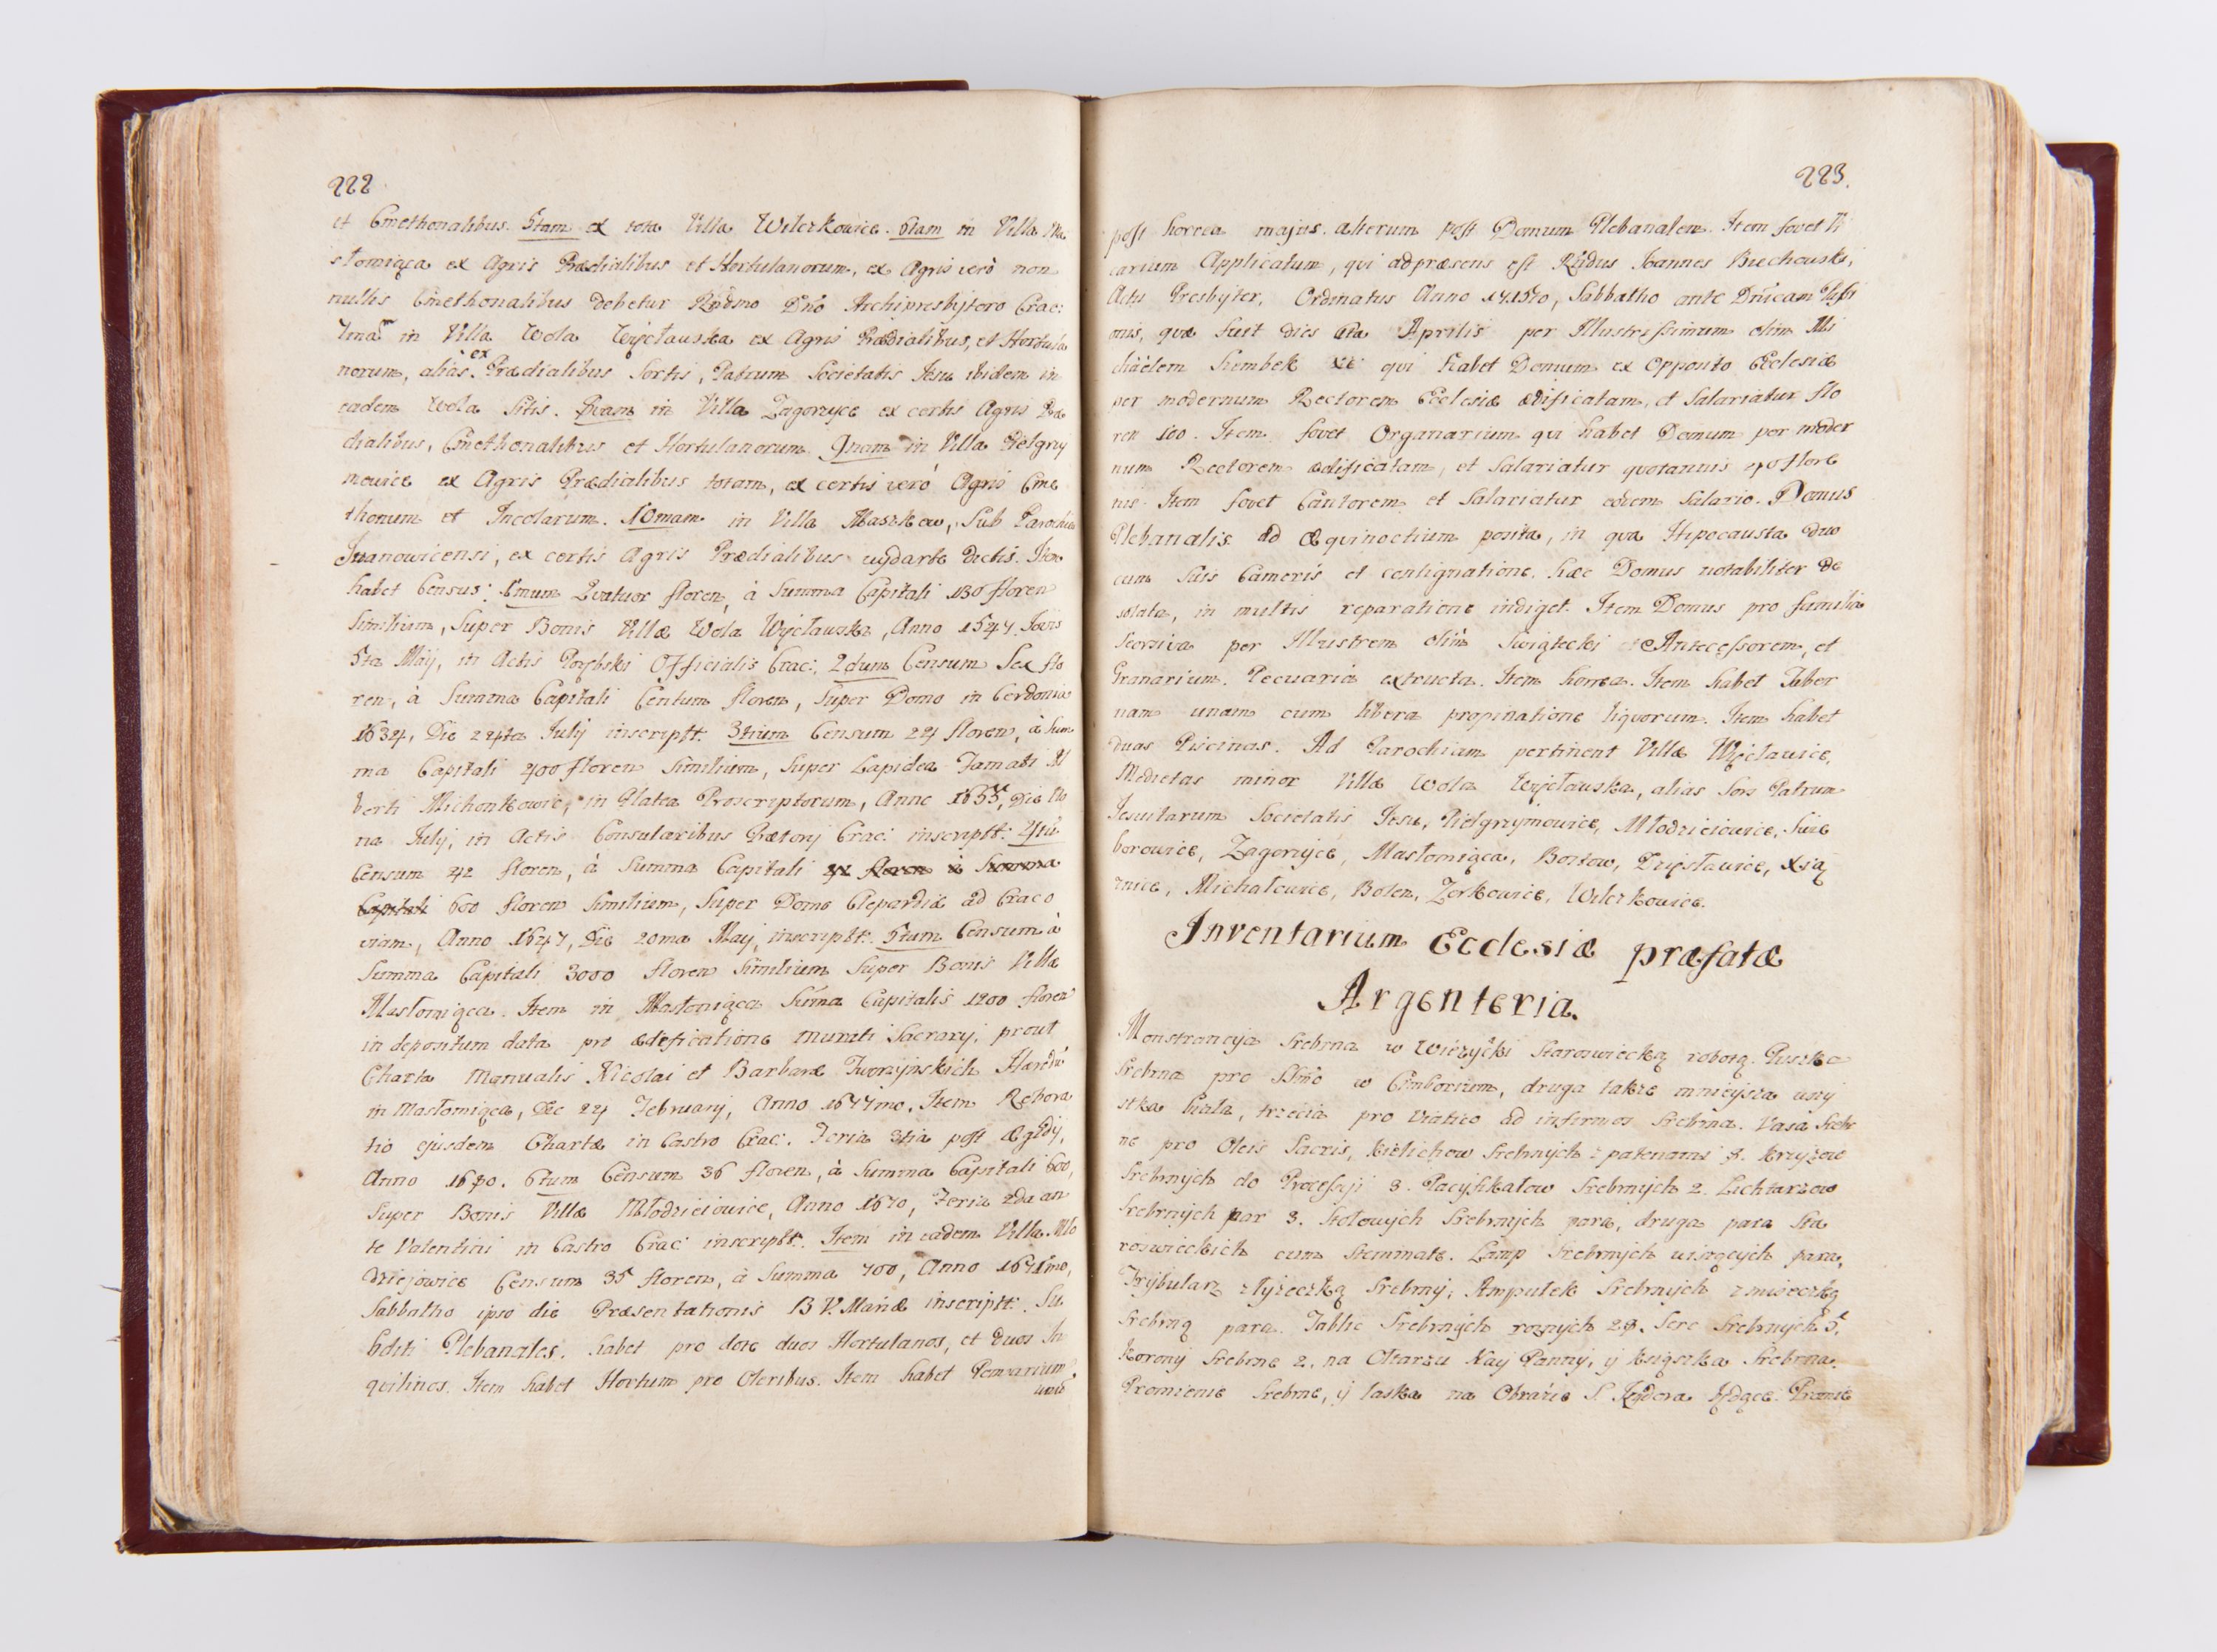 222
et Cmethonalibus. 5tam ex tota Villa Wilczkowice. 6tam in Villa Ma
słomiąca ex Agris Prædialibus et Hortulanorum, ex Agris verò non
nullis Cmethonalibus debetur Rndmo Dno Archipresbytero Crac:
7mam in Villa Wola Więcławska ex Agris Prædialibus, et Hortula
norum, alias ex Prædialibus Sortis, Patrum Societatis Jesu ibidem in
eadem Wola Sitis. 8vam in Villa Zagorzyce ex certis Agris Præ
dialibus, Cmethonalibus et Hortulanorum. 9nam in Villa Pielgrzy
mowice ex Agris Prædialibus totam, ex certis verò Agris Cme
thonum et Incolarum. 10mam in Villa Maszkow, Sub Parochia
Iwanowicensi, ex certis Agris Prædialibus wydarte dictis. Item
habet Census: 1mum Quatuor floren, à Summa Capitali 130 floren
Similium, Super Bonis Villæ Wola Więcławska, Anno 1547. Jovis
5ta Maij, in Actis Porębski Officialis Crac: 2dum Censum Sex flo
ren, à Summa Capitali Centum floren, Super Domo in Cerdonia
1634, Die 24ta Julij inscriptt: 3tium Censum 24 floren, à Sum
ma Capitali 400 floren Similium, Super Lapidea Famati Al
berti Michonkowic, in Platea Proscriptorum, Anno 1655, Die No
na Julij, in Actis Consularibus Prætorij Crac: inscriptt: 4tū
Censum 42 floren, à Summa Capitali 42 floren à Summa
Capitali 600 floren Similium, Super Domo Clepardiæ ad Craco
viam, Anno 1647, Die 20ma Maij, inscriptt: 5tum Censum à
Summa Capitali 3000 floren Similium Super Bonis Villæ
Masłomiąca. Item in Masłomiąca Suma Capitalis 1200 floren
in depositum data pro ædificatione murati Sacrarij, prout
Charta Manualis Nicolai et Barbaræ Tworzyńskich Hæredū
in Masłomiąca, Die 24 Februarij, Anno 1677mo. Item Robora
tio ejusdem Chartæ in Castro Crac: Feria 3tia post Ægidij,
Anno 1680. 6tum Censum 36 floren, à Summa Capitali 600,
Super Bonis Villæ Młodzieiowice, Anno 1670, Feria 2da an
te Valentini in Castro Crac: inscriptt: Item in eadem Villa Mło
dziejowice Censum 35 floren, à Summa 700, Anno 1671mo,
Sabbatho ipso die Præsentationis B V. Mariæ inscriptt: Su
bditi Plebanales. habet pro dote duos Hortulanos, et duos In
quilinos. Item habet Hortum pro Oleribus. Item habet Pomarium
unū
223.
post horrea majus. alterum post Domum Plebanalem. Item fovet Vi
carium Applicatum, qui ad præsens est Rndus Joannes Buchowski,
Actu Presbyter, Ordinatus Anno 1715to, Sabbatho ante Dnicam Passi
onis, quæ fuit dies 6ta Aprilis per Illustrissimum olim Mi
chaëlem Szembek qui habet Domum ex Opposito Ecclesiæ
per modernum Rectorem Ecclesiæ ædificatam, et Salariatur flo
ren 100. Item fovet Organarium qui habet Domum per moder
num Rectorem ædificatam, et Salariatur quotannis flore
nis. Item fovet Cantorem et Salariatur eodem Salario. Domus
Plebanalis ad Æquinoctium posita, in qua Hipocausta duo
cum Suis Cameris et contignatione. hæc Domus notabiliter de
solata, in multis reparatione indiget. Item Domus pro familia
Seorsiva per Illustrem olim Swiątecki Antecessorem, et
Granarium. Pecuaria extructa. Item horrea. Item habet Taber
nam unam cum libera propinatione liquorum. Item habet
duas Piscinas. Ad Parochiam pertinent Villæ Więcławice,
Medietas minor Villæ Wola Więcławska, alias Sors Patrum
Jesuitarum Societatis Jesu, Pielgrzymowice, Młodzieiowice, Sie
borowice, Zagorzyce, Masłomiąca, Bostow, Przęsławice, Xsią
znice, Michałowice, Bolen, Zerkowice, Wilczkowice.
Inventarium Ecclesiæ præfatæ
Argenteria.
Monstrancya Srebrna w Wieżyczki Staroswiecką robotą. Puszka
Srebrna pro SSmo w Cimborium, druga takze mnieysza wszy
stka biała, trzecia pro Viatico ad infirmos Srebrna. Vasa Srebr
ne pro Oleis Sacris, kielichow Srebrnych z patenami 8. krzyzow
Srebrnych do Processyi 3. Pacyfikałow Srebrnych 2. Lichtarzow
Srebrnych par 3. Stołowych Srebrnych para, druga para Sta
roswieckich cum Stemmate. Lamp Srebrnych wiszących para,
Trybularz z łyzeczką Srebrny, Ampułek Srebrnych z miseczką
Srebrną para. Tablic Srebrnych roznych 28. Serc Srebrnych 5,
korony Srebrne 2, na Ołtarzu Nay Panny, y ksiąszka Srebrna.
Promienie Srebrne, y laska na Obrazie S. Izydora będące. Promie